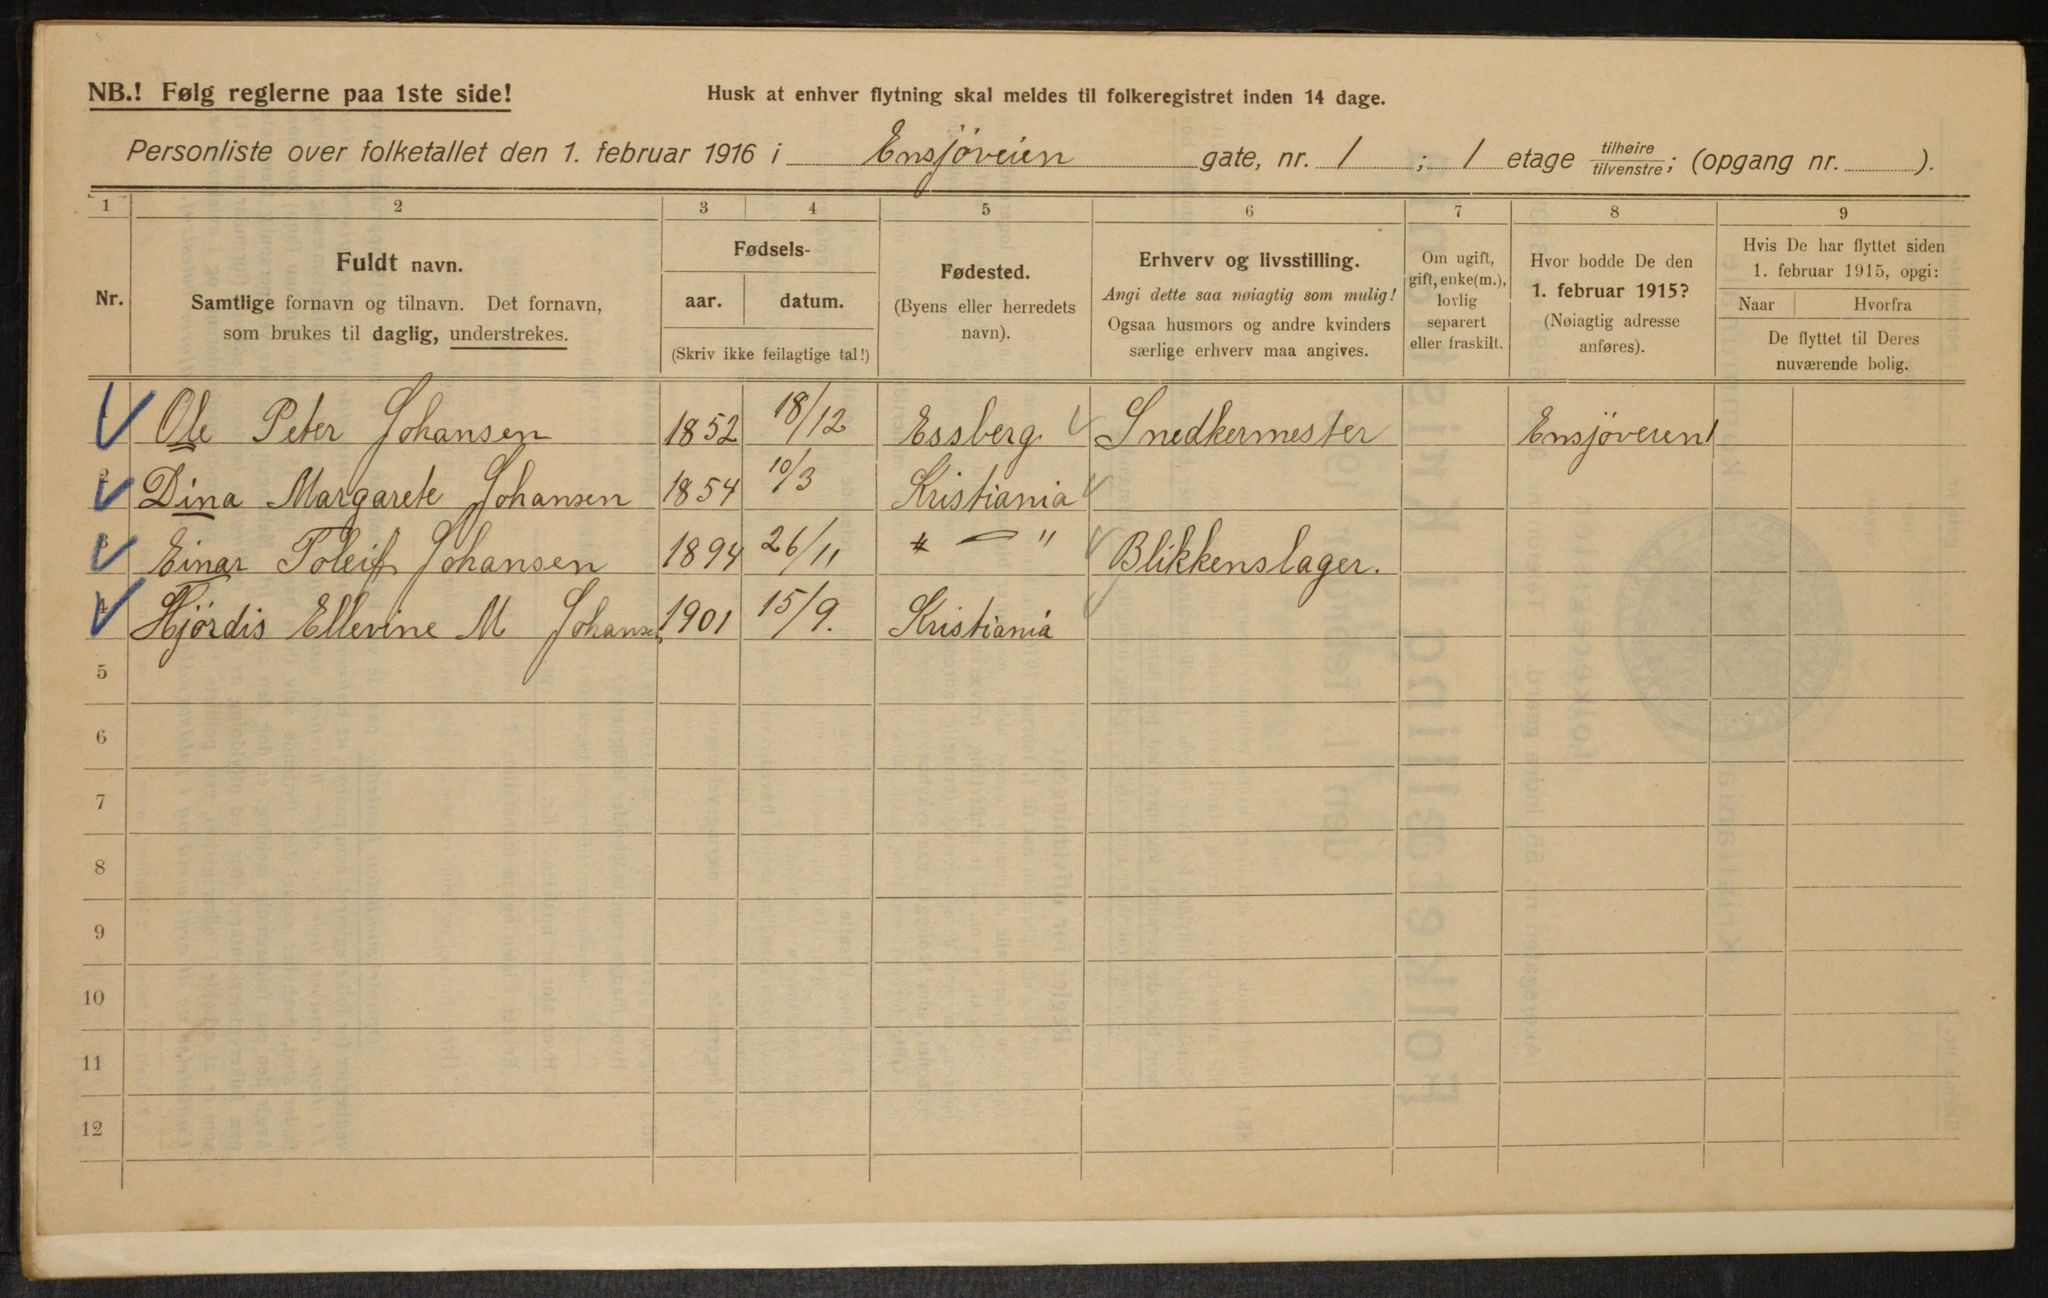 NB.! Følg reglerne paa 1ste side!
Husk at enhver flytning skal meldes til folkeregistret inden 14 dage.
Personliste over folketallet den 1. februar 1916 i Ensjöveien gate, nr. 1 ; 1 etage tilhøire/tilvenstre; (opgang nr. ).
1 2 3 4 5 6 7 8 9
Nr.
Fuldt navn.
Samtlige fornavn og tilnavn. Det fornavn,
som brukes til daglig, understrekes.
Fødsels-
aar. datum.
(Skriv ikke feilagtige tal!)
Fødested.
(Byens eller herredets
navn).
Erhverv og livsstilling.
Angi dette saa nøiagtig som mulig!
Ogsaa husmors og andre kvinders
særlige erhverv maa angives.
Om ugift,
gift, enke(m.),
lovlig
separert
eller fraskilt.
Hvor bodde De den
1. februar 1915?
(Nøiagtig adresse
anføres).
Hvis De har flyttet siden
1. februar 1915, opgi:
Naar Hvorfra
De flyttet til Deres
nuværende bolig.
1 Ole Peter Johansen 1852 18/12 Essberg Snedkermester Ensjöveien 1
2 Dina Margarete Johansen 1854 10/3 Kristiania
3 Einar Toleif Johansen 1894 26/11 " — " Blikkenslager.
4 Hjördis Ellevine M Johansen 1901 15/9. Kristiania
5
6
7
8
9
10
11
12